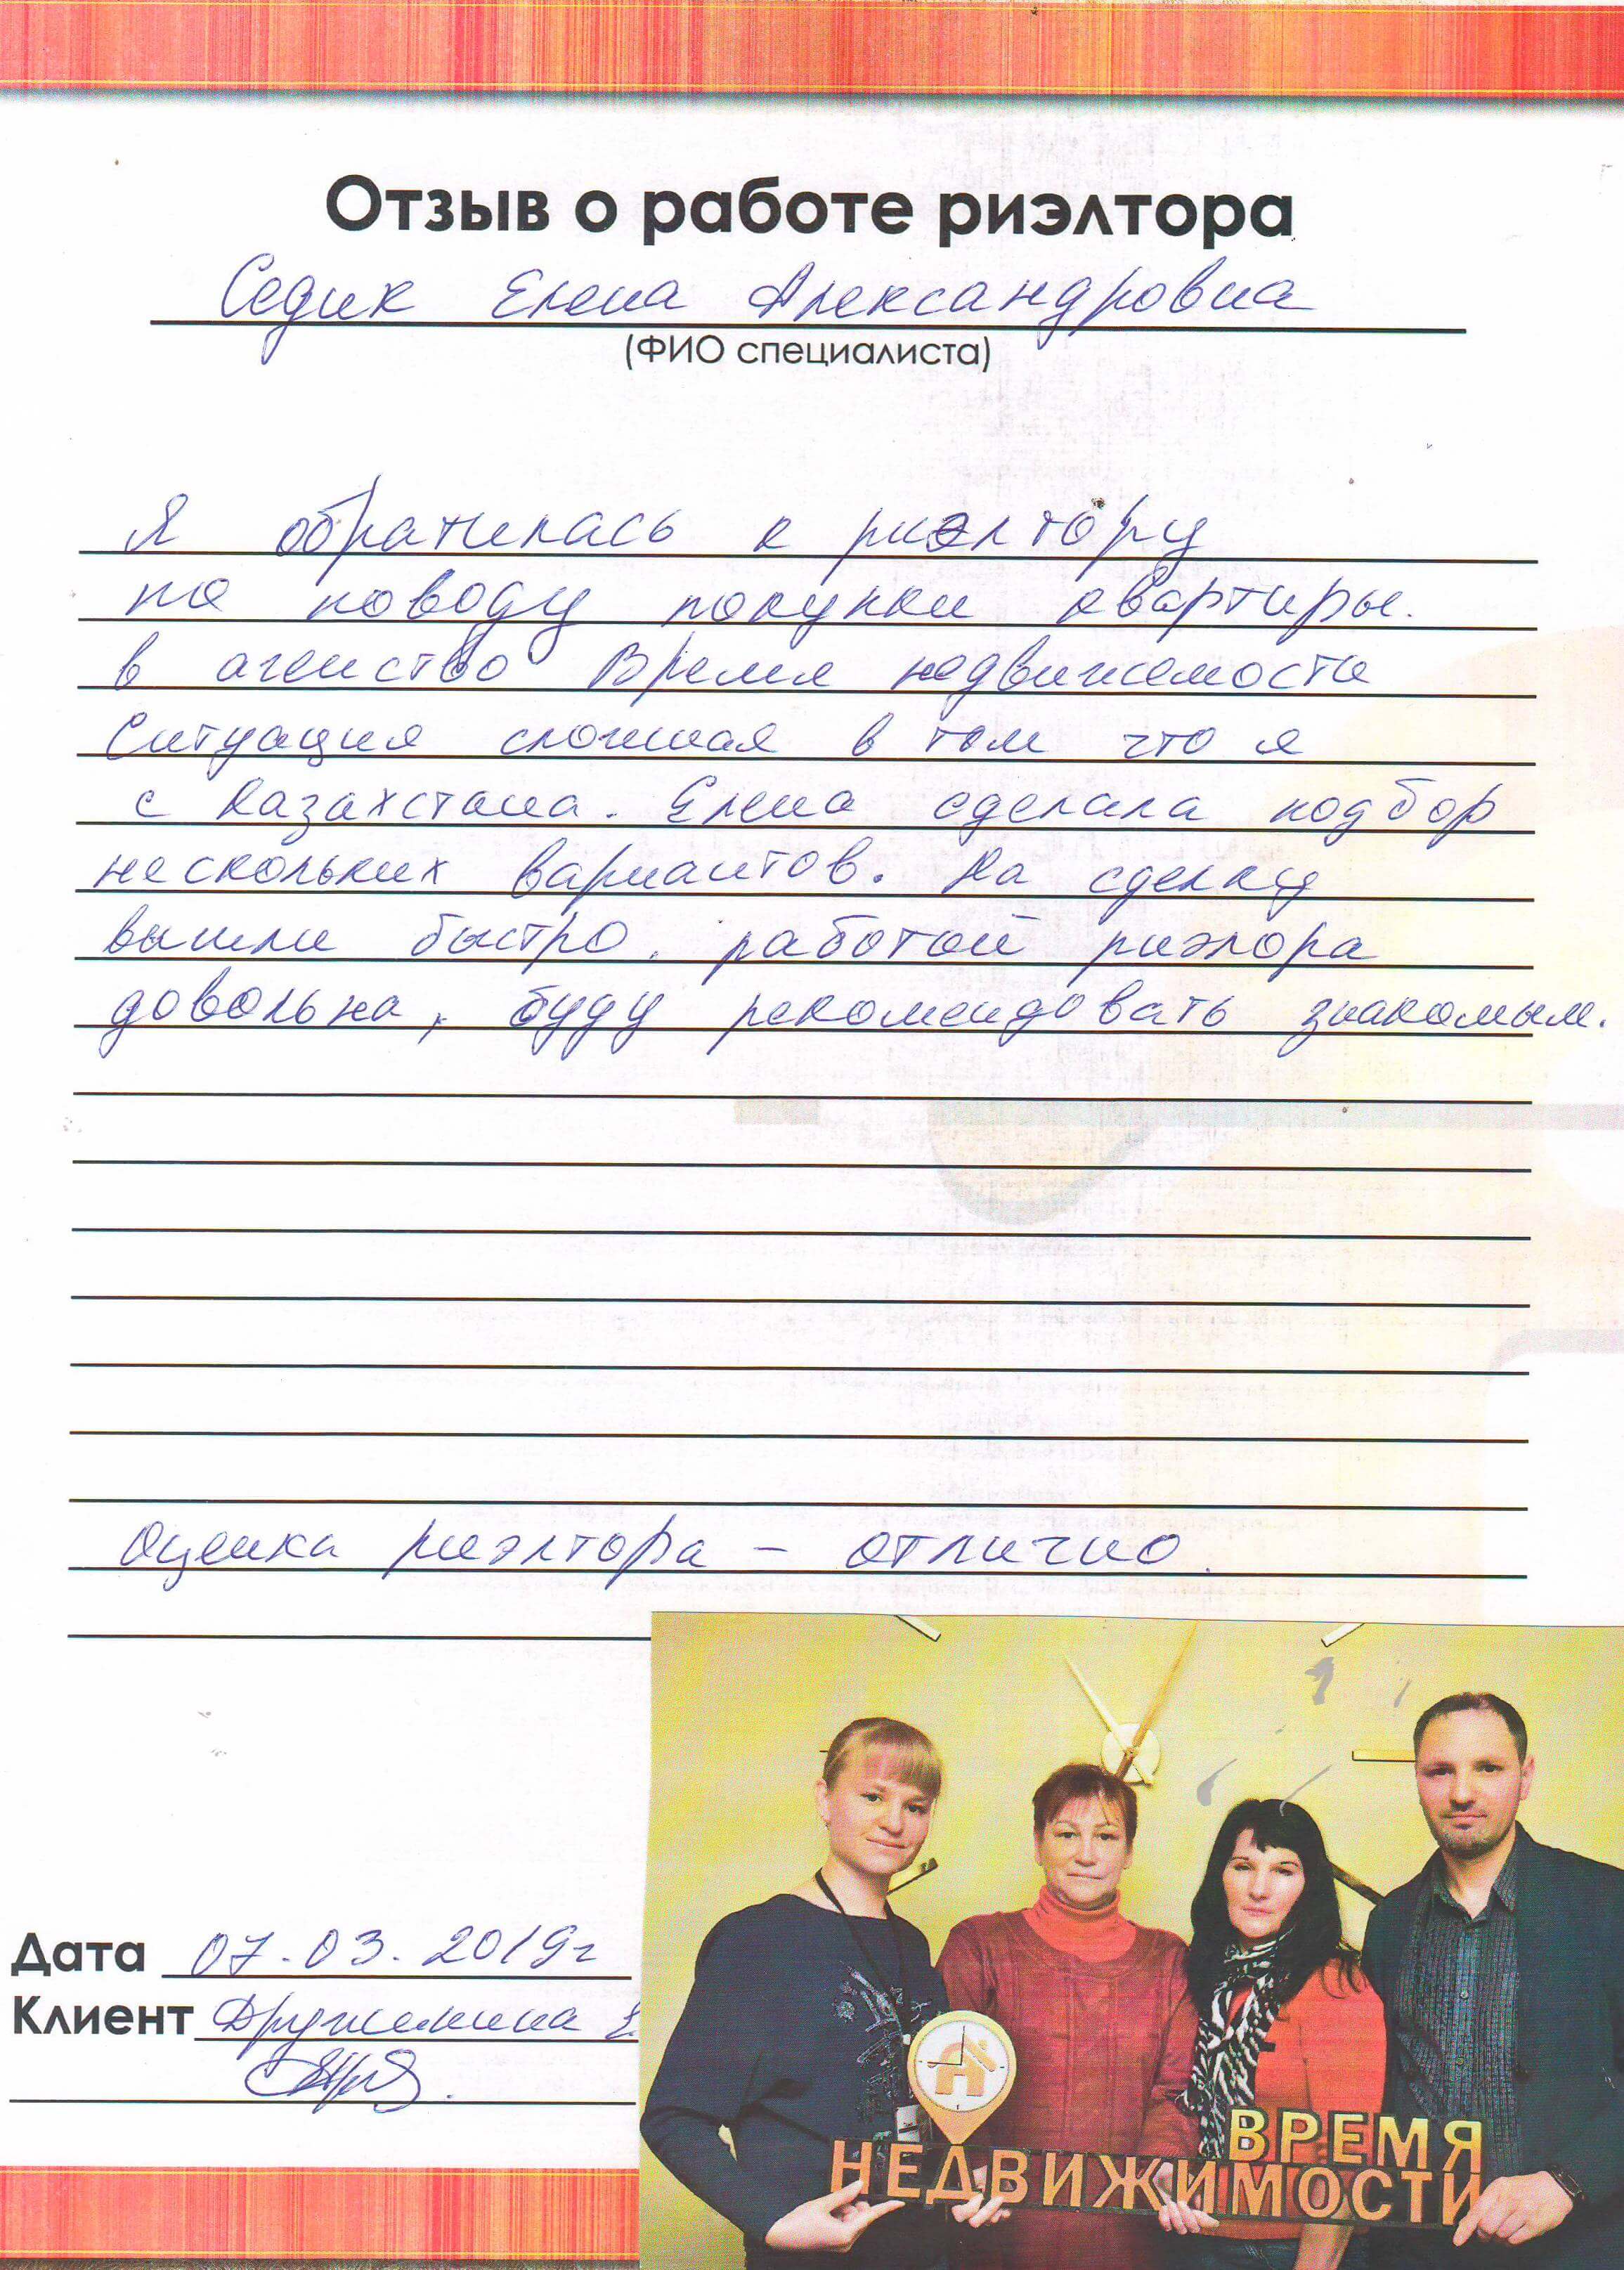 Отзыв о работе риэлтора
Седик Елена Александровна
(ФИО специалиста)
Я обратилась к риэлтору
по поводу покупки квартиры.
в агенство Время недвижимости
Ситуация сложная в том что я
с Казахстана. Елена сделала подбор
нескольких вариантов. На сделку
вышли быстро. работой риэлора
довольна, буду рекомендовать знакомым.
Оценка риэлтора – отлично.
Дата 07.03.2019г
Клиент Дружинина Е.
ВРЕМЯ
НЕДВИЖИМОСТИ